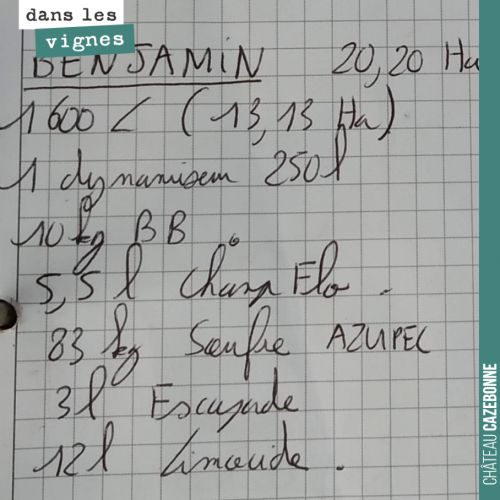 dans les
vignes
BENJAMIN 20,20 Ha
1 600 L (13,13 Ha)
1 dynamiseur 250 l
10 kg BB
5,5 l Champ Flo.
83 kg Soufre AZUPEC
3 l Escapade
12 l Limocide.
CHÂTEAU CAZEBONNE